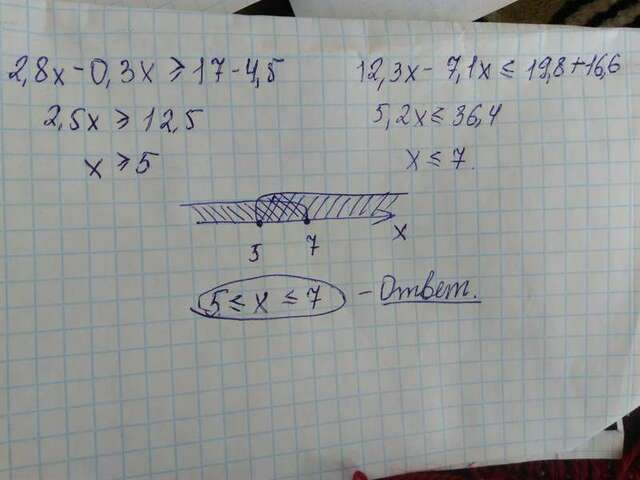 2,8x - 0,3x ⩾ 17 - 4,5
2,5x ⩾ 12,5
x ⩾ 5
12,3x - 7,1x ≤ 19,8 + 16,6
5,2x ≤ 36,4
x ≤ 7.
5 7 x
5 ≤ x ≤ 7 - Ответ.